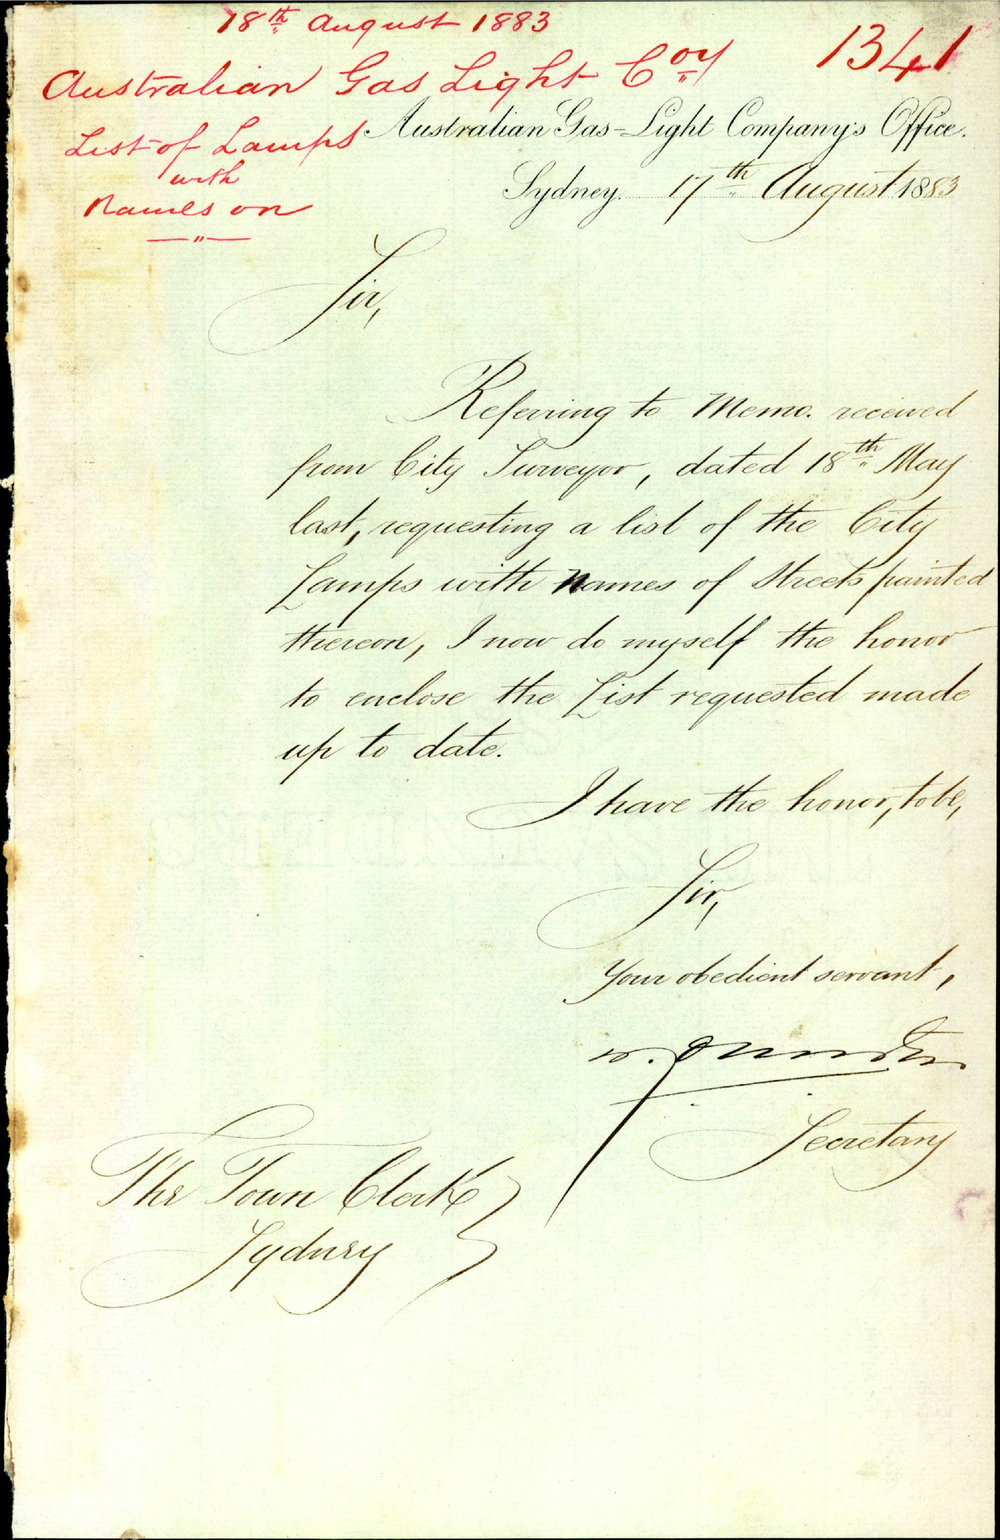 18th August 1883
1341
Australian Gas Light Coy
List of Lamps
with
Names on
Australian Gas-Light Company's Office.
Sydney. 17th August 1883
Sir,
Referring to Memo. received
from City Surveyor, dated 18th May
last, requesting a list of the City
Lamps with Names of Streets painted
thereon, I now do myself the honor
to enclose the List requested made
up to date.
I have the honor, to be,
Sir,
Your obedient servant,
W.
Secretary
The Town Clerk
Sydney